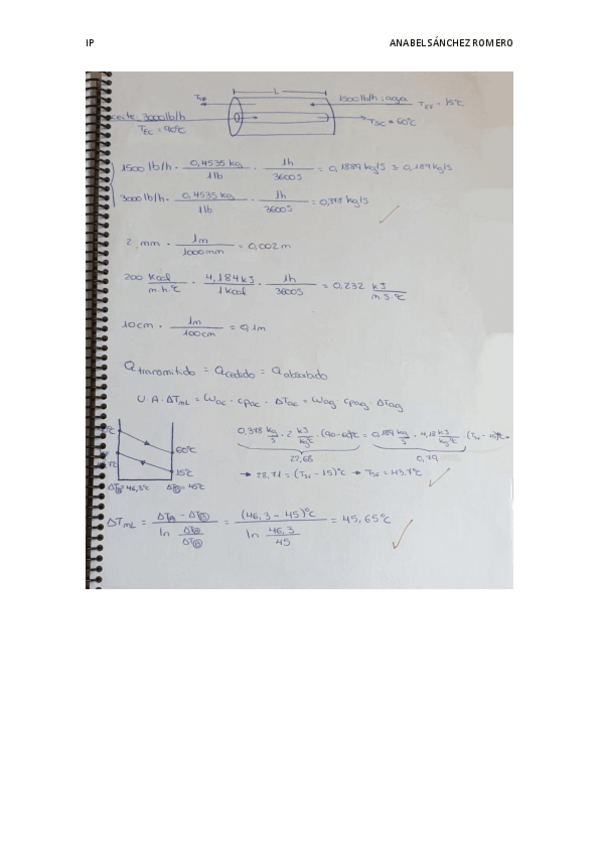 IP ANABEL SÁNCHEZ ROMERO
L
1500 lb/h : agua TEF = 15°C
aceite 3000 lb/h TSC = 60°C
TEC = 90°C
1500 lb/h · 0,4535 kg / 1 lb · 1h / 3600 s = 0,1889 kg/s ≈ 0,189 kg/s
3000 lb/h · 0,4535 kg / 1 lb · 1h / 3600 s = 0,378 kg/s
2 mm · 1m / 1000 mm = 0,002 m
200 Kcal / m·h·°C · 4,184 KJ / 1 Kcal · 1h / 3600 s = 0,232 KJ / m·s·°C
10 cm · 1m / 100 cm = 0,1 m
Q transmitido = Q cedido = Q absorbido
U · A · ΔTmL = Wac · cpac · ΔTac = Wag · cpag · ΔTag
0,378 kg/s · 2 KJ/kg°C · (90-60)°C = 0,189 kg/s · 4,18 KJ/kg°C
60°C 22,68 0,79
15°C → 28,71 = (TSF - 15)°C → TSF = 43,7°C
ΔT = 46,3°C ΔT = 45°C
ΔTmL = ΔT - ΔT / ln ΔT / ΔT = (46,3 - 45)°C / ln 46,3 / 45 = 45,65°C